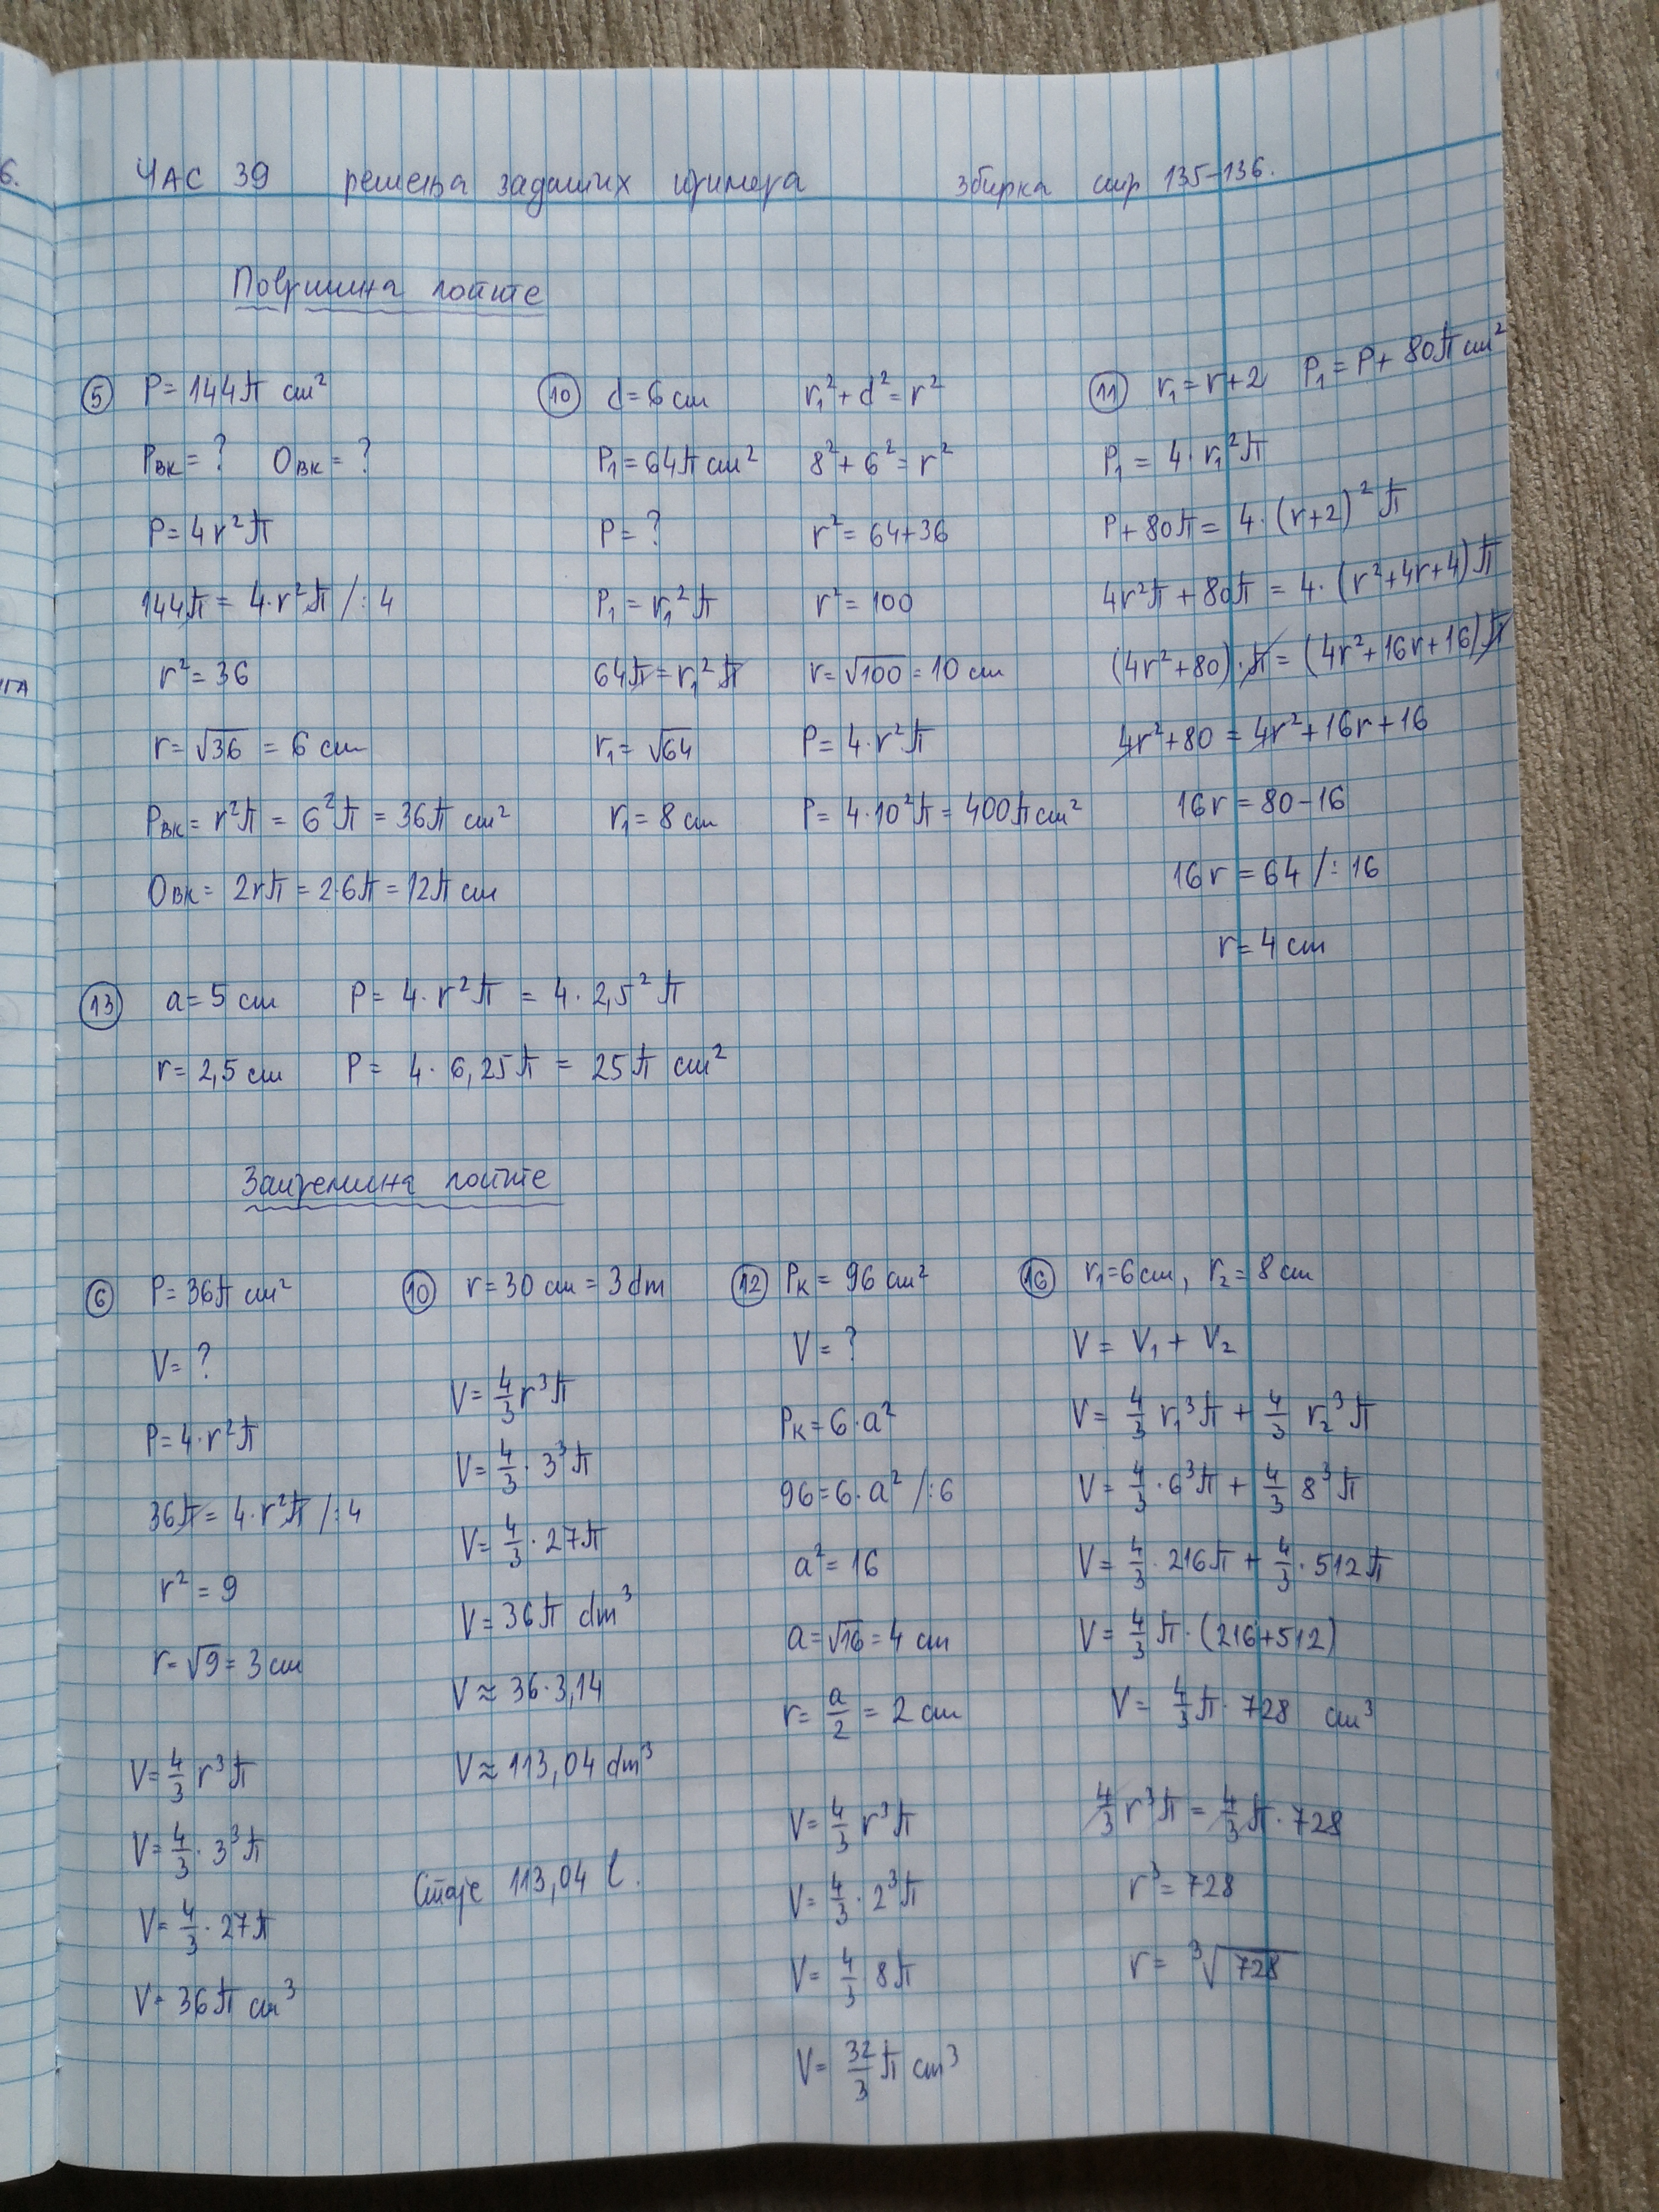 ЧАС 39 решења задатих примера збирка стр 135-136.
Површина лопте
⑤ P = 144π cm²
Pвк = ? Oвк = ?
P = 4r²π
144π = 4·r²π /:4
r² = 36
r = √36 = 6 cm
Pвк = r²π = 6²π = 36π cm²
Oвк = 2rπ = 2·6π = 12π cm
⑩ d = 6 cm
P₁ = 64π cm²
P = ?
P₁ = r₁²π
64π = r₁²π
r₁ = √64
r₁ = 8 cm
r₁² + d² = r²
8² + 6² = r²
r² = 64+36
r² = 100
r = √100 = 10 cm
P = 4·r²π
P = 4·10²π = 400π cm²
⑪ r₁ = r+2 P₁ = P + 80π cm²
P₁ = 4·r₁²π
P + 80π = 4·(r+2)²π
4r²π + 80π = 4·(r²+4r+4)π
(4r²+80)·π = (4r²+16r+16)π
4r²+80 = 4r²+16r+16
16r = 80-16
16r = 64 /:16
r = 4 cm
⑬ a = 5 cm P = 4·r²π = 4·2,5²π
r = 2,5 cm P = 4·6,25π = 25π cm²
Запремина лопте
⑥ P = 36π cm²
V = ?
P = 4·r²π
36π = 4·r²π /:4
r² = 9
r = √9 = 3 cm
V = 4/3 r³π
V = 4/3 · 3³π
V = 4/3 · 27π
V = 36π cm³
⑩ r = 30 cm = 3 dm
V = 4/3 r³π
V = 4/3 · 3³π
V = 4/3 · 27π
V = 36π dm³
V ≈ 36·3,14
V ≈ 113,04 dm³
Стаје 113,04 l.
⑫ Pк = 96 cm²
V = ?
Pк = 6·a²
96 = 6·a² /:6
a² = 16
a = √16 = 4 cm
r = a/2 = 2 cm
V = 4/3 r³π
V = 4/3 · 2³π
V = 4/3 8π
V = 32/3 π cm³
⑯ r₁ = 6 cm, r₂ = 8 cm
V = V₁ + V₂
V = 4/3 r₁³π + 4/3 r₂³π
V = 4/3 · 6³π + 4/3 8³π
V = 4/3 · 216π + 4/3 · 512π
V = 4/3 π·(216+512)
V = 4/3 π· 728 cm³
4/3 r³π = 4/3 π· 728
r³ = 728
r = ³√728